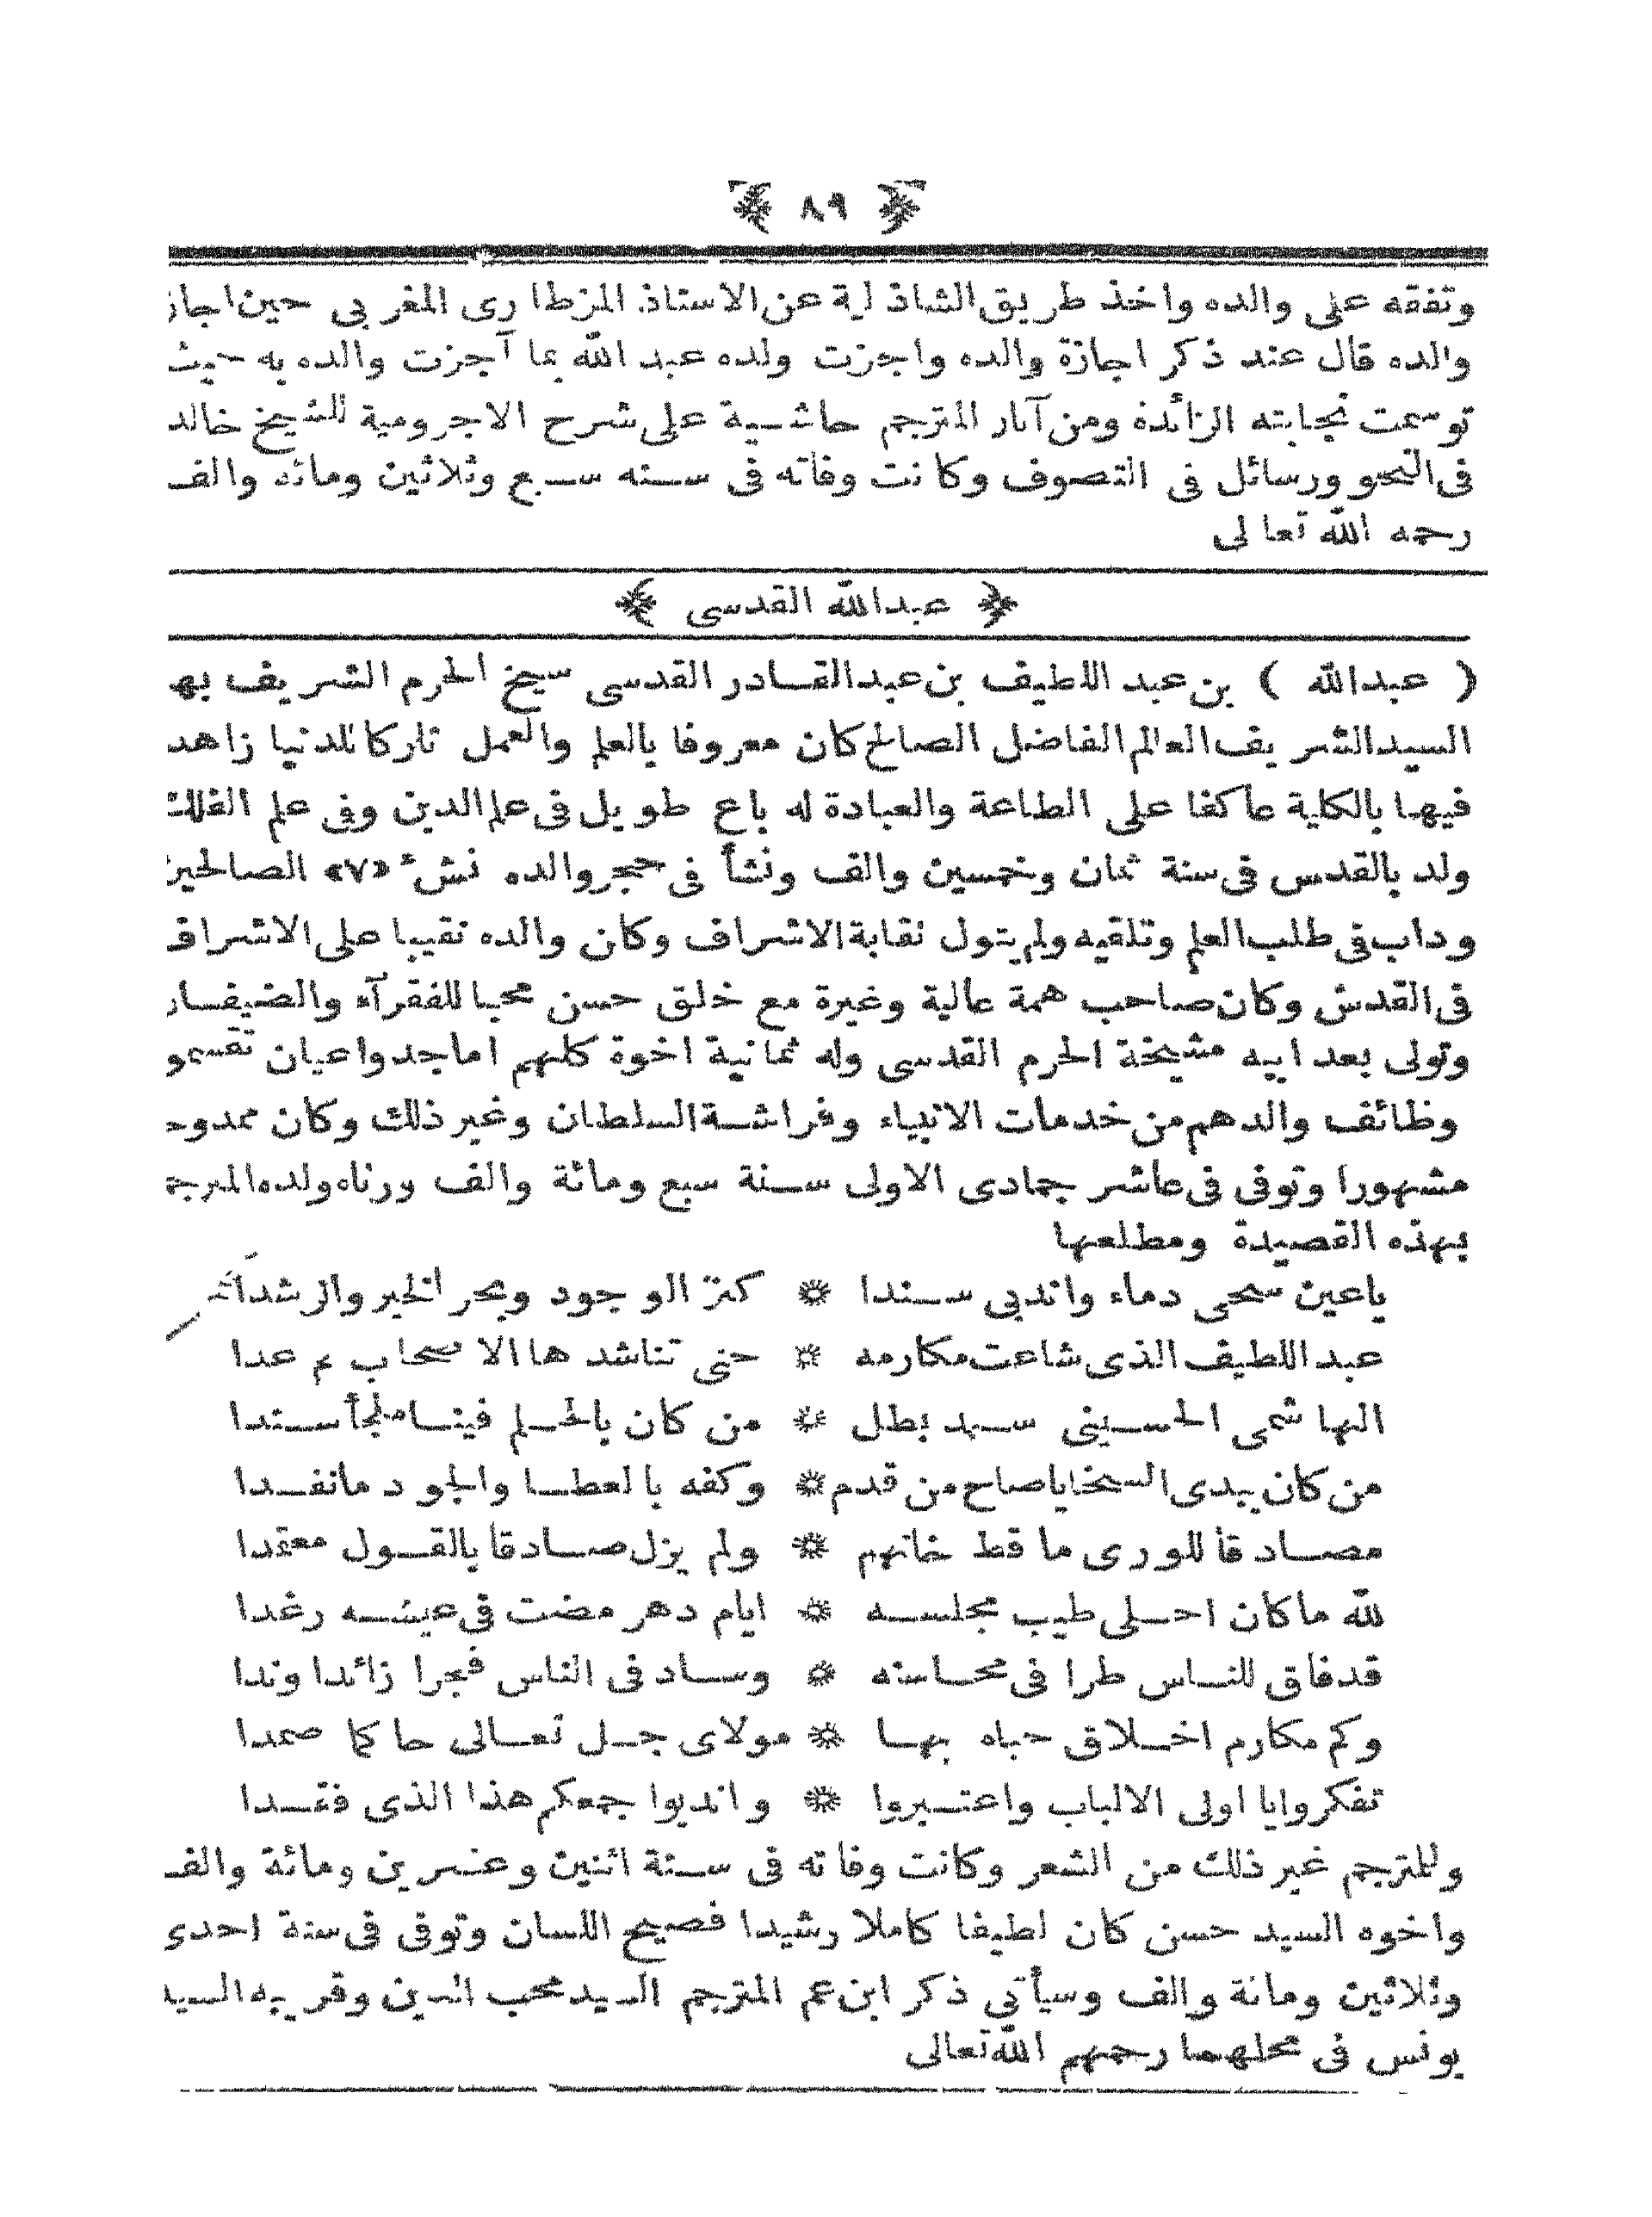 ﴿ ٨٩ ﴾
وتفقه على والده واخذ طريق الشاذلية عن الاستاذ المزطارى المغربى حين اجاز
والده قال عند ذكر اجازة والده واجزت ولده عبد الله بما آجزت والده به حيث
توسمت نجابته الزائدة ومن آثار المترجم حاشية على شرح الاجرومية للشيخ خالد
فى النحو ورسائل فى التصوف وكانت وفاته فى سنه سبع وثلاثين ومائه والف
رحمه الله تعالى
﴿ عبدالله القدسى ﴾
( عبدالله ) بن عبد اللطيف بن عبدالقادر القدسى شيخ الحرم الشريف بها
السيد الشريف العالم الفاضل الصالح كان معروفا بالعلم والعمل تاركا للدنيا زاهدا
فيها بالكلية عاكفا على الطاعة والعبادة له باع طويل فى علم الدين وفى علم الفلك
ولد بالقدس فى سنة ثمان وخمسين والف ونشأ فى حجر والده نشء «٧» الصالحين
وداب فى طلب العلم وتلقيه ولم يتول نقابة الاشراف وكان والده نقيبا على الاشراف
فى القدس وكان صاحب همة عالية وغيرة مع خلق حسن محبا للفقرآء والضيفان
وتولى بعد ابيه مشيخة الحرم القدسى وله ثمانية اخوة كلهم اماجد واعيان تقسموا
وظائف والدهم من خدمات الانبياء وفراشة السلطان وغير ذلك وكان ممدوحا
مشهورا وتوفى فى عاشر جمادى الاولى سنة سبع ومائة والف ورثاه ولده المترجم
بهذه القصيدة ومطلعها
ياعين سحى دماء واندبى سندا ❊ كنز الوجود وبحر الخير والرشدا
عبد اللطيف الذى شاعت مكارمه ❊ حتى تناشدها الاصحاب ثم عدا
الهاشمى الحسينى سيد بطل ❊ من كان بالحلم فينا ملجأ سندا
من كان يبدى السخايا صاح من قدم ❊ وكفه بالعطا والجود مانفدا
مصادقا للورى ما قط خانهم ❊ ولم يزل صادقا بالقول معتمدا
لله ماكان احلى طيب مجلسه ❊ ايام دهر مضت فى عيشه رغدا
قدفاق للناس طرا فى محاسنه ❊ وساد فى الناس فجرا زائدا وندا
وكم مكارم اخلاق حباه بها ❊ مولاى جل تعالى حاكما صمدا
تفكروا يا اولى الالباب واعتبروا ❊ واندبوا جمعكم هذا الذى فقدا
وللمترجم غير ذلك من الشعر وكانت وفاته فى سنة اثنين وعشرين ومائة والف
واخوه السيد حسن كان لطيفا كاملا رشيدا فصيح اللسان وتوفى فى سنة احدى
وثلاثين ومائة والف وسيأتى ذكر ابن عم المترجم السيد محب الدين وقريبه السيد
يونس فى محلهما رحمهم الله تعالى